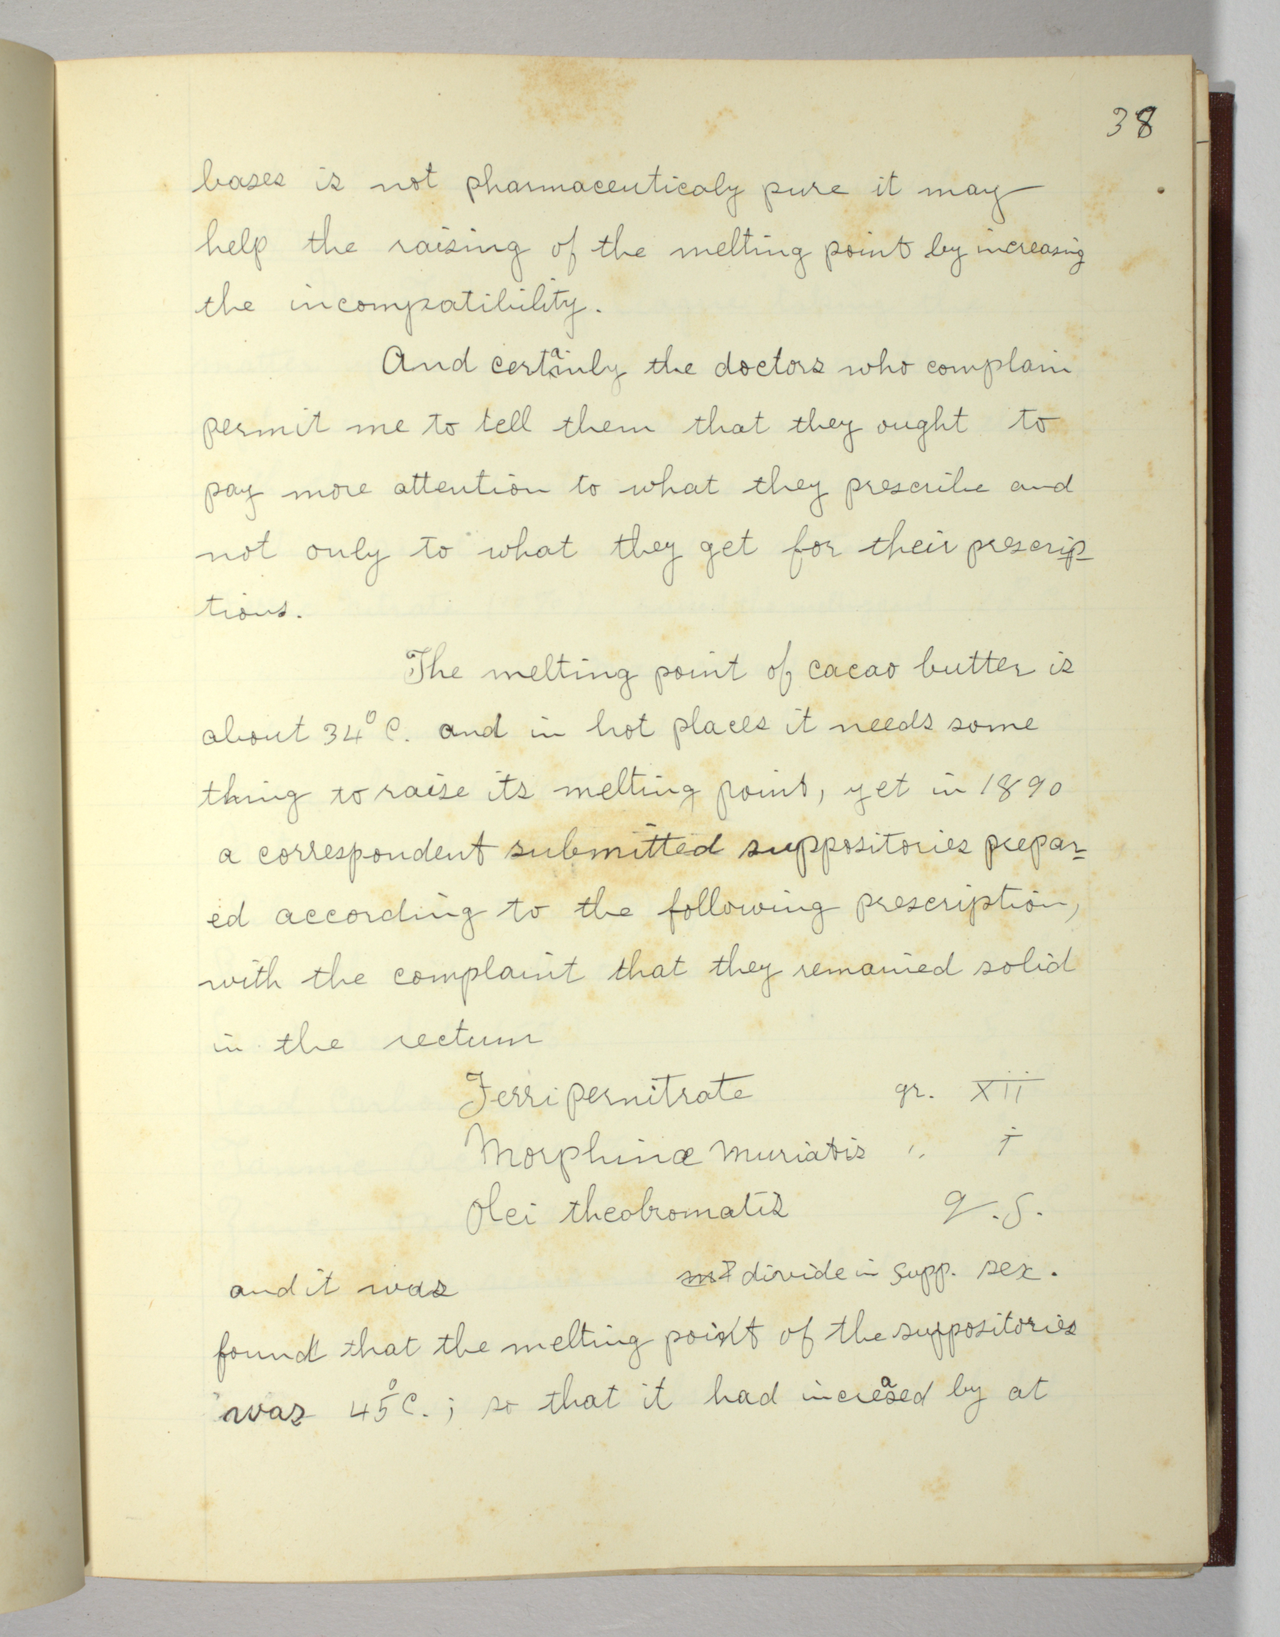 38
bases is not pharmaceuticaly pure it may
help the raising of the melting point by increasing
the incompatibility.
And certainly the doctors who complain
permit me to tell them that they ought to
pay more attention to what they prescribe and
not only to what they get for their prescrip-
tions.
The melting point of cacao butter is
about 34°C. and in hot places it needs some
thing to raise its melting point, yet in 1890
a correspondent submitted suppositories prepar-
ed according to the following prescription,
with the complaint that they remained solid
in the rectum
Ferri pernitrate gr. xii
Morphinæ muriatis " i
Olei theobromatis q.s.
divide in supp. sex.
and it was
found that the melting point of the suppositories
was 45°C.; so that it had increased by at